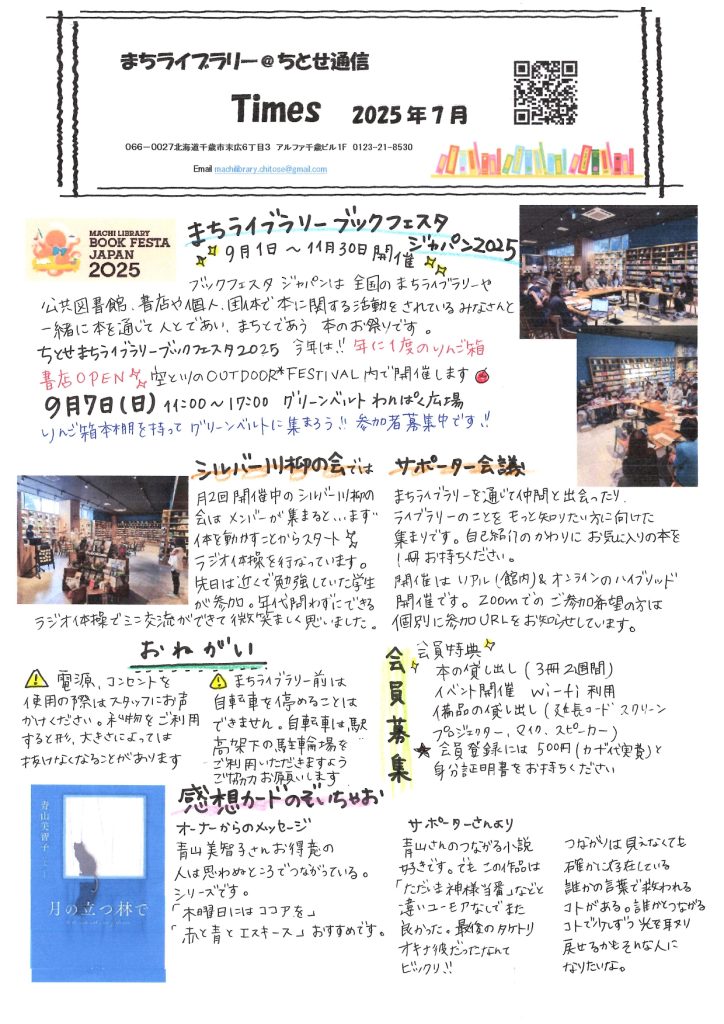 まちライブラリー@ちとせ通信
Times 2025年7月
066-0027北海道千歳市末広6丁目3 アルファ千歳ビル1F 0123-21-8530
Email machilibrary.chitose@gmail.com
MACHI LIBRARY
BOOK FESTA
JAPAN
2025
まちライブラリーブックフェスタ
ジャパン2025
9月1日〜11月30日開催
ブックフェスタ ジャパンは 全国のまちライブラリーや
公共図書館、書店や個人、団体で本に関する活動をされているみなさんと
一緒に本を通じて人とであい、まちとであう 本のお祭りです。
ちとせまちライブラリーブックフェスタ2025 今年は!! 年に1度のりんご箱
書店OPEN 空とりのOUTDOOR*FESTIVAL内で開催します
9月7日(日) 11:00〜17:00 グリーンベルト わんぱく広場
りんご箱本棚を持って グリーンベルトに集まろう!! 参加者募集中です!!
シルバー川柳の会では
月2回開催中のシルバー川柳の
会は メンバーが集まると…まず
体を動かすことからスタート
ラジオ体操を行なっています。
先日は近くで勉強していた学生
が参加。年代問わずにできる
ラジオ体操でミニ交流ができて微笑ましく思いました。
サポーター会議
まちライブラリーを通じて仲間と出会ったり、
ライブラリーのことを もっと知りたい方に向けた
集まりです。自己紹介のかわりに お気に入りの本を
1冊お持ちください。
開催は リアル(館内)&オンラインのハイブリッド
開催です。Zoomでの ご参加希望の方は
個別に参加URLをお知らせしています。
おねがい
電源、コンセントを
使用の際はスタッフにお声
がけください。私物をご利用
すると形、大きさによっては
抜けなくなることがあります
まちライブラリー前は
自転車を停めることは
できません。自転車は、駅
高架下の駐輪場を
ご利用いただきますよう
ご協力お願いします
会員募集
会員特典
本の貸し出し(3冊2週間)
イベント開催 Wi-fi利用
備品の貸し出し(延長コード スクリーン
プロジェクター、マイク、スピーカー)
★会員登録には500円(カード代実費)と
身分証明書をお持ちください
青山美智子
月の立つ林で
感想カードのぞいちゃお
オーナーからのメッセージ
青山美智子さんお得意の
人は思わぬところでつながっている。
シリーズです。
「木曜日にはココアを」
「赤と青とエスキース」おすすめです。
サポーターさんより
青山さんのつながる小説
好きです。でも この作品は
「ただいま神様当番」などと
違いユーモアなしでまた
良かった。最後のタケトリ
オキナ彼だったなんて
ビックリ!!
つながりは見えなくても
確かに存在している
誰かの言葉で救われる
コトがある。誰かとつながる
コトで少しずつ光を取り
戻せるかもそんな人に
なりたいな。